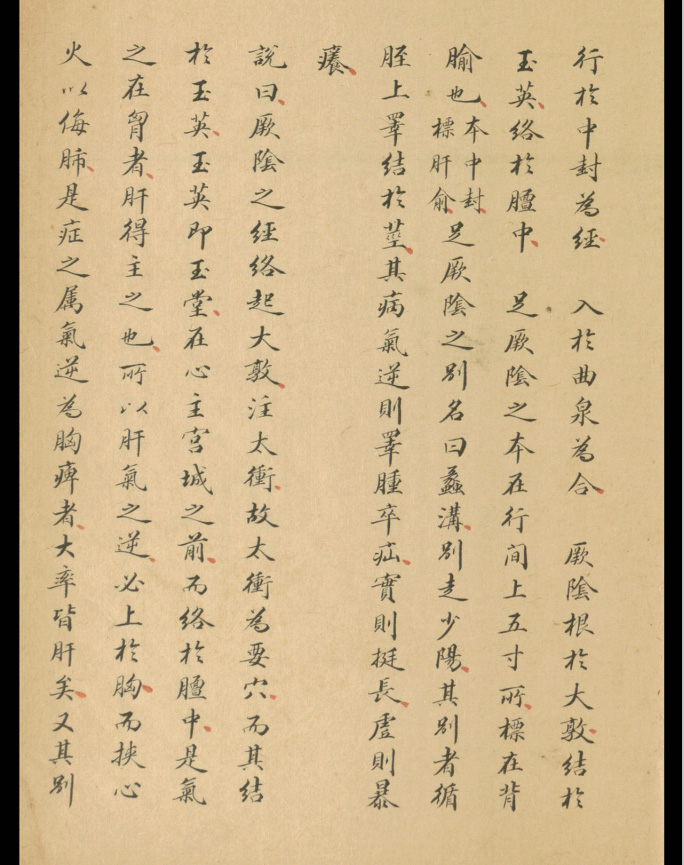 行於中封為經　入於曲泉為合　厥陰根於大敦結於
玉英絡於膻中　足厥陰之本在行间上五寸所標在背
腧也本中封標肝俞足厥陰之別名曰蠡溝別走少陽其別者循
胫上睪結於莖其病氣逆則睪腫卒疝實則挺長虛則暴
癢
說曰厥陰之經絡起大敦注太衝故太衝為要穴而其結
於玉英玉英即玉堂在心主宫城之前而络於膻中是氣
之在胷者肝得主之也所以肝氣之逆必上於胸而挾心
火以侮肺是症之属氣逆為胸痺者大率皆肝矣又其別